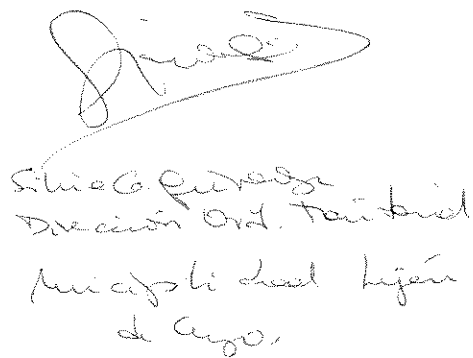 Silvia G. Quiroga
Dirección Ord. Territorial
Municipalidad Luján
de Cuyo.